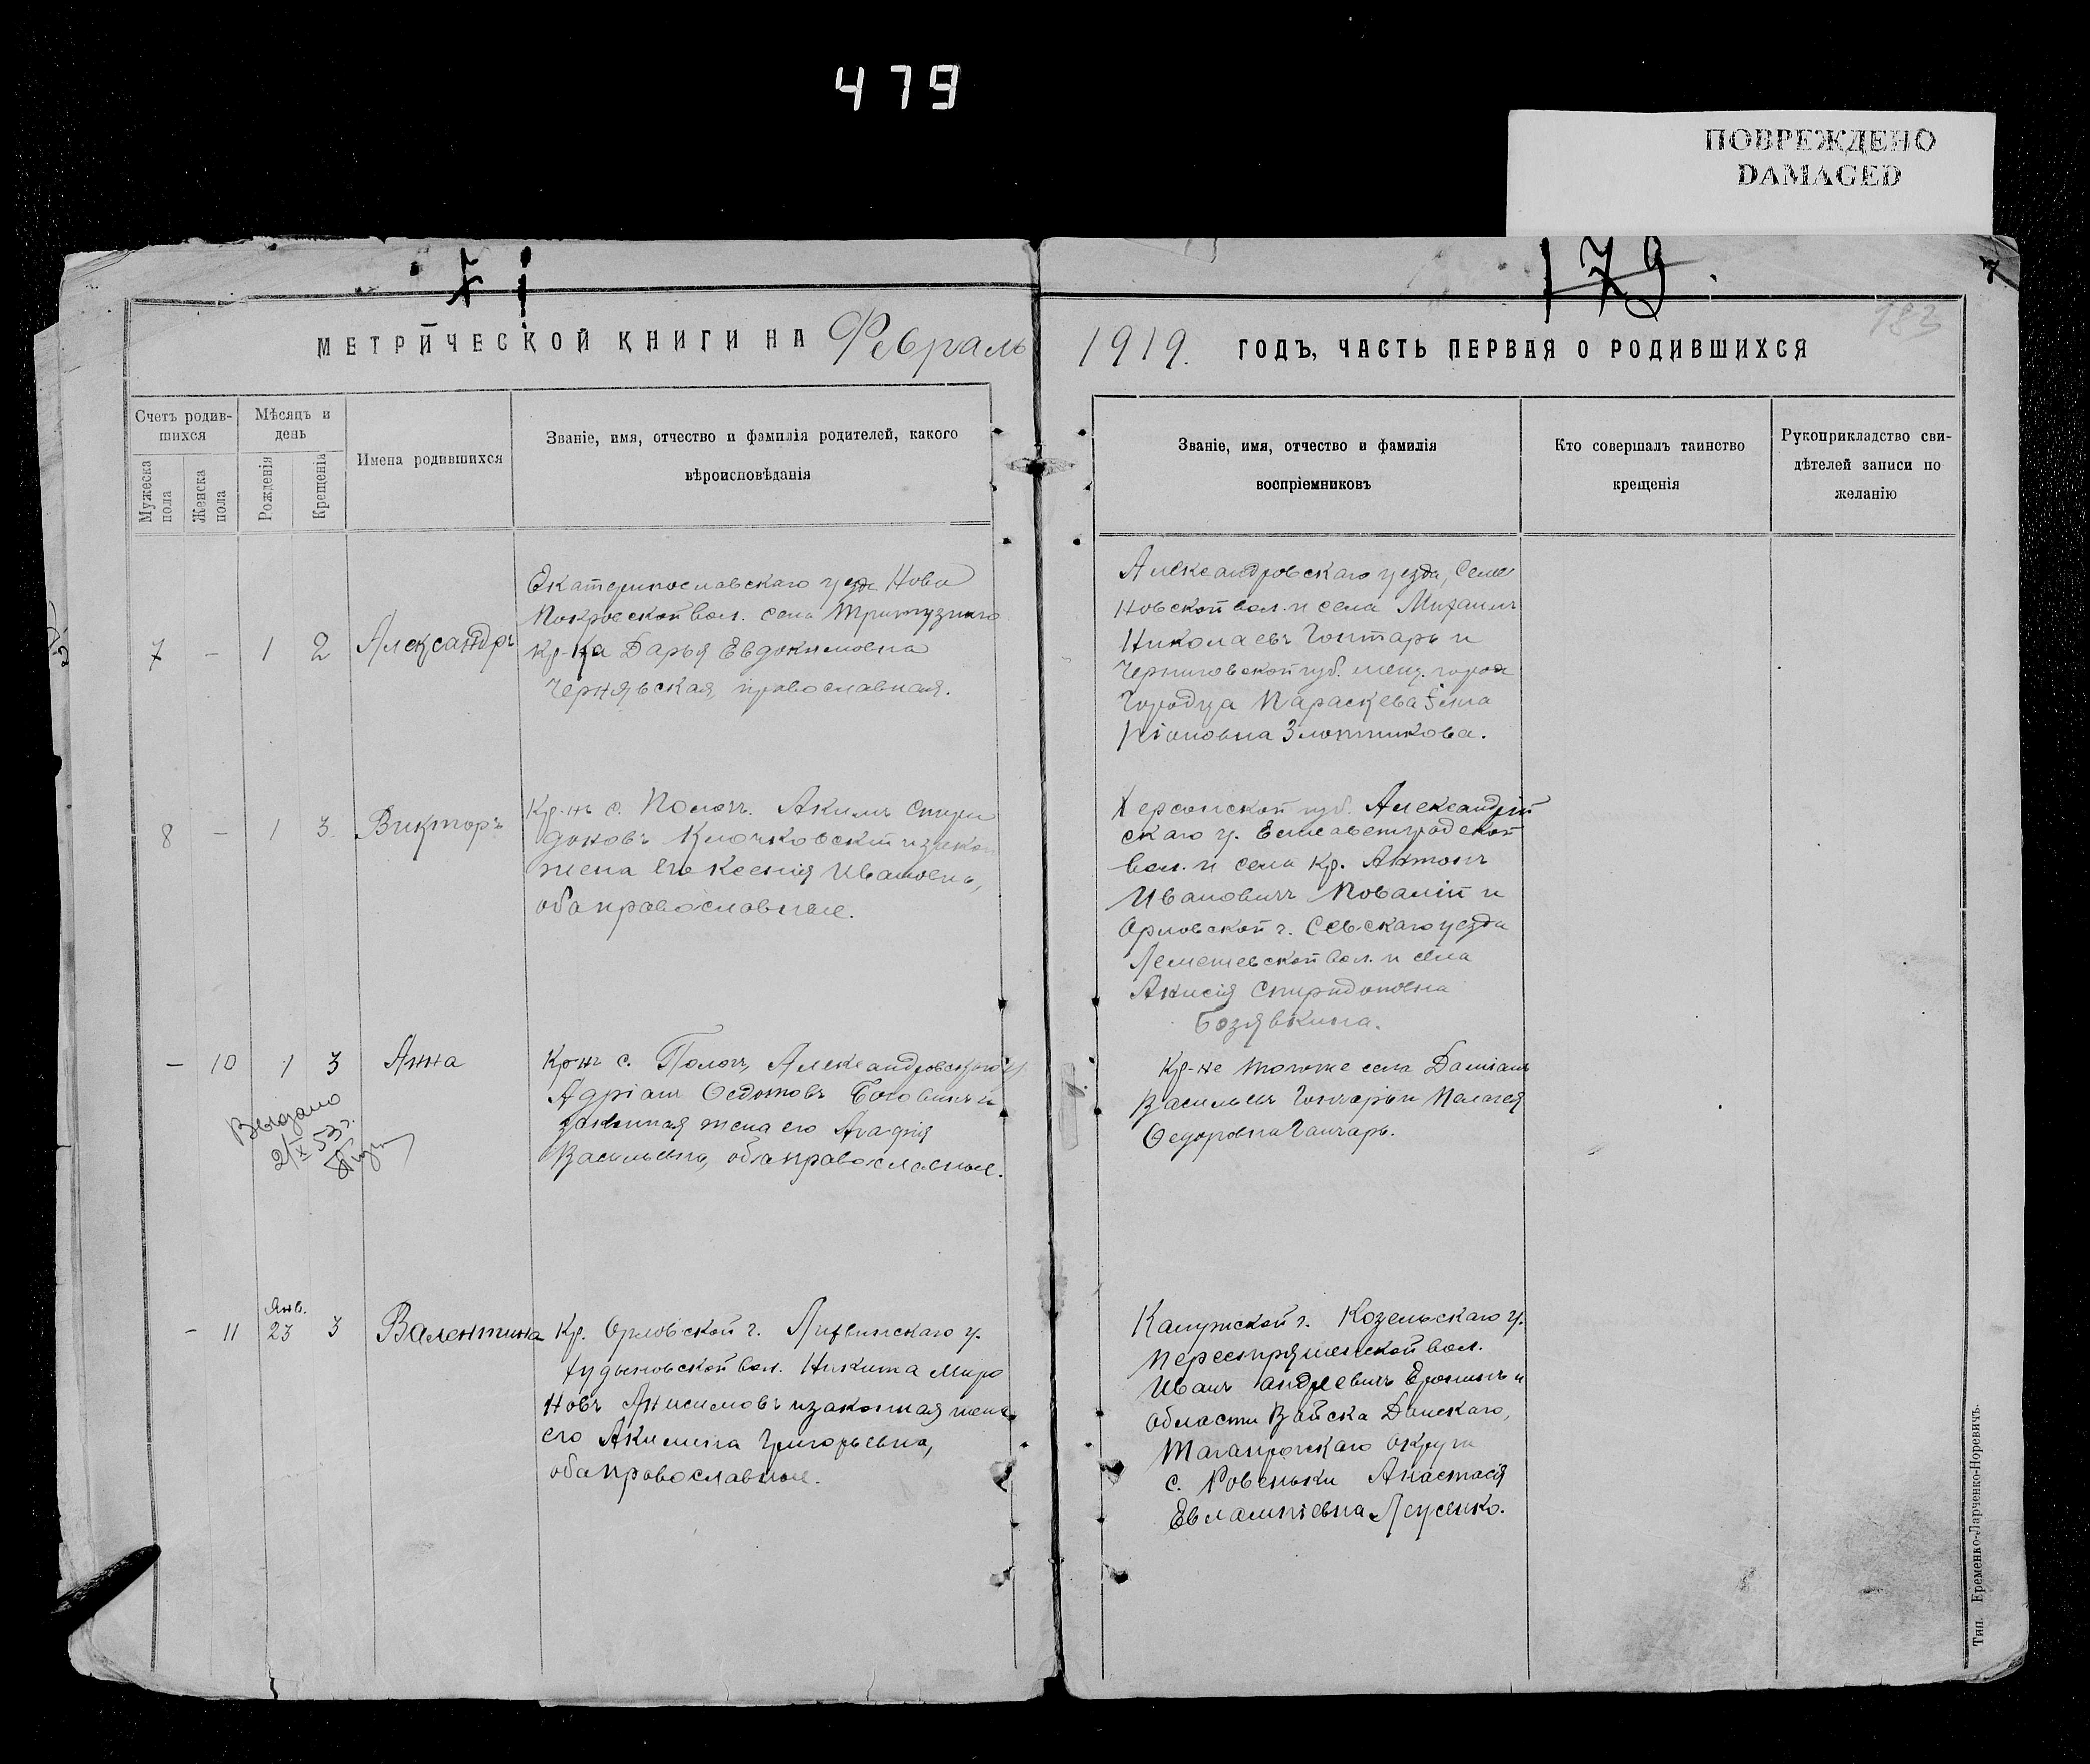 479
ПОВРЕЖДЕНО
DAMAGED
179
7
183
МЕТРИЧЕСКОЙ КНИГИ НА Февраль
1919. ГОДЪ, ЧАСТЬ ПЕРВАЯ О РОДИВШИХСЯ
Счетъ родив-
шихся
Мужеска
пола
Женска
пола
Мѣсяцъ и
день
Рожденія
Крещенія
Имена родившихся
Званіе, имя, отчество и фамилія родителей, какого
вѣроисповѣданія
Званіе, имя, отчество и фамилія
воспріемниковъ
Кто совершалъ таинство
крещенія
Рукоприкладство сви-
дѣтелей записи по
желанію
7 - 1 2 Александръ
Екатеринославскаго уезда Ново
Покровской вол. села Тритузнаго
кр-ка Дарья Евдокимовна
Чернявская, православная.
Александровскаго уезда, Семе
новской вол. и села Михаилъ
Николаевъ Гонтарь и
Черниговской губ. мещ. города
Городца Параскева
Злотникова.
8 - 1 3 Викторъ
Кр-нъ с. Пологъ. Акимъ Спири
доновъ Клочковскій и закон
жена его Ксенія Ивановна,
оба православные.
Херсонской губ. Александрій
скаго у. Елисаветградской
вол. и села кр. Антонъ
Ивановичъ Повалій и
Орловской г. Севскаго уезда
Лемешевской вол. и села
Анисія Спиридоновна
Бозявкина.
- 10 1 3 Анна
Кр-нъ с. Пологъ, Александровскаго у
Адріанъ Федотовъ Боговинъ и
законная жена его Агафія
Васильевна, оба православные.
Кр-не того же села Даміанъ
Васильевъ Гончаръ и Пелагея
Федоровна Ганчаръ.
Выдано
2/X 53 г.
- 11 Янв. 23 3 Валентина
Кр. Орловской г. у.
вол. Никита Миро
новъ Анисимовъ и законная жена
его Акилина Григорьевна,
оба православные.
Калужской г. Козельскаго у.
вол.
Иванъ Андреевичъ Еронинъ и
Области Войска Донскаго,
Таганрогскаго округа
с. Ровеньки Анастасія
Евлампіевна Лусенко.
Тип. Еременко-Ларченко-Норевичъ.